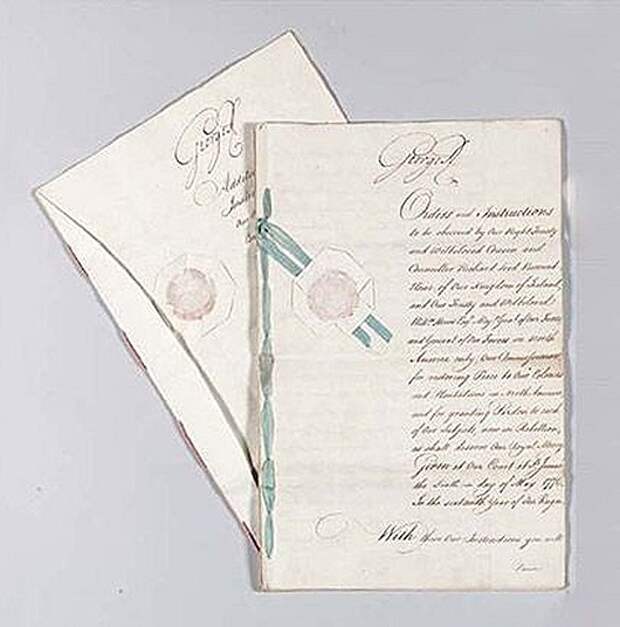 George R
Additi
Instru
our
George R
Orders and Instructions
to be observed by Our Right Trusty
and Welbeloved Cousin and
Councellor Richard Lord Viscount
Howe of Our Kingdom of Ireland,
and Our Trusty and Welbeloved
Will.m Howe Esq.r Maj.r Gen.l of Our Forces
and General of Our Forces in North
America only, Our Commissioners
for restoring Peace to Our Colonies
and Plantations in North America
and for granting Pardon to such
of Our Subjects, now in Rebellion,
as shall deserve Our Royal Mercy
Given at Our Court at St. James's
the Sixth day of May 1776
In the sixteenth Year of Our Reign
With these Our Instructions you will